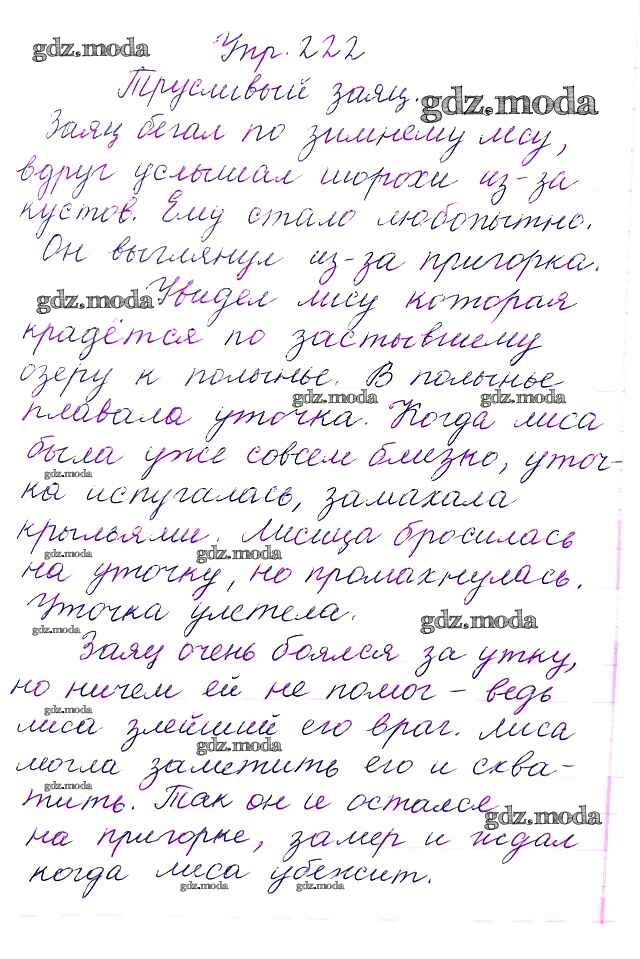 gdz.moda
Упр. 222
Трусливый заяц.
gdz.moda
Заяц бегал по зимнему лесу,
вдруг услышал шорохи из-за
кустов. Ему стало любопытно.
Он выглянул из-за пригорка.
gdz.moda
Увидел лису которая
крадётся по застывшему
озеру к полынье. В полынье
gdz.moda gdz.moda
плавала уточка. Когда лиса
была уже совсем близко, уточ-
gdz.moda
ка испугалась, замахала
крыльями. Лисица бросилась
gdz.moda gdz.moda
на уточку, но промахнулась.
Уточка улетела.
gdz.moda gdz.moda
Заяц очень боялся за утку,
но ничем ей не помог – ведь
gdz.moda
лиса злейший его враг. Лиса
gdz.moda
могла заметить его и схва-
gdz.moda
тить. Так он и остался
gdz.moda
на пригорке, замер и ждал
когда лиса убежит.
gdz.moda gdz.moda